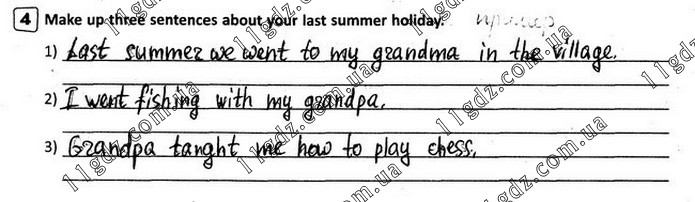 4 Make up three sentences about your last summer holiday.
1) Last summer we went to my grandma in the village.
2) I went fishing with my grandpa.
3) Grandpa tanght me how to play chess.
11gdz.com.ua
11gdz.com.ua
11gdz.com.ua
11gdz.com.ua
11gdz.com.ua